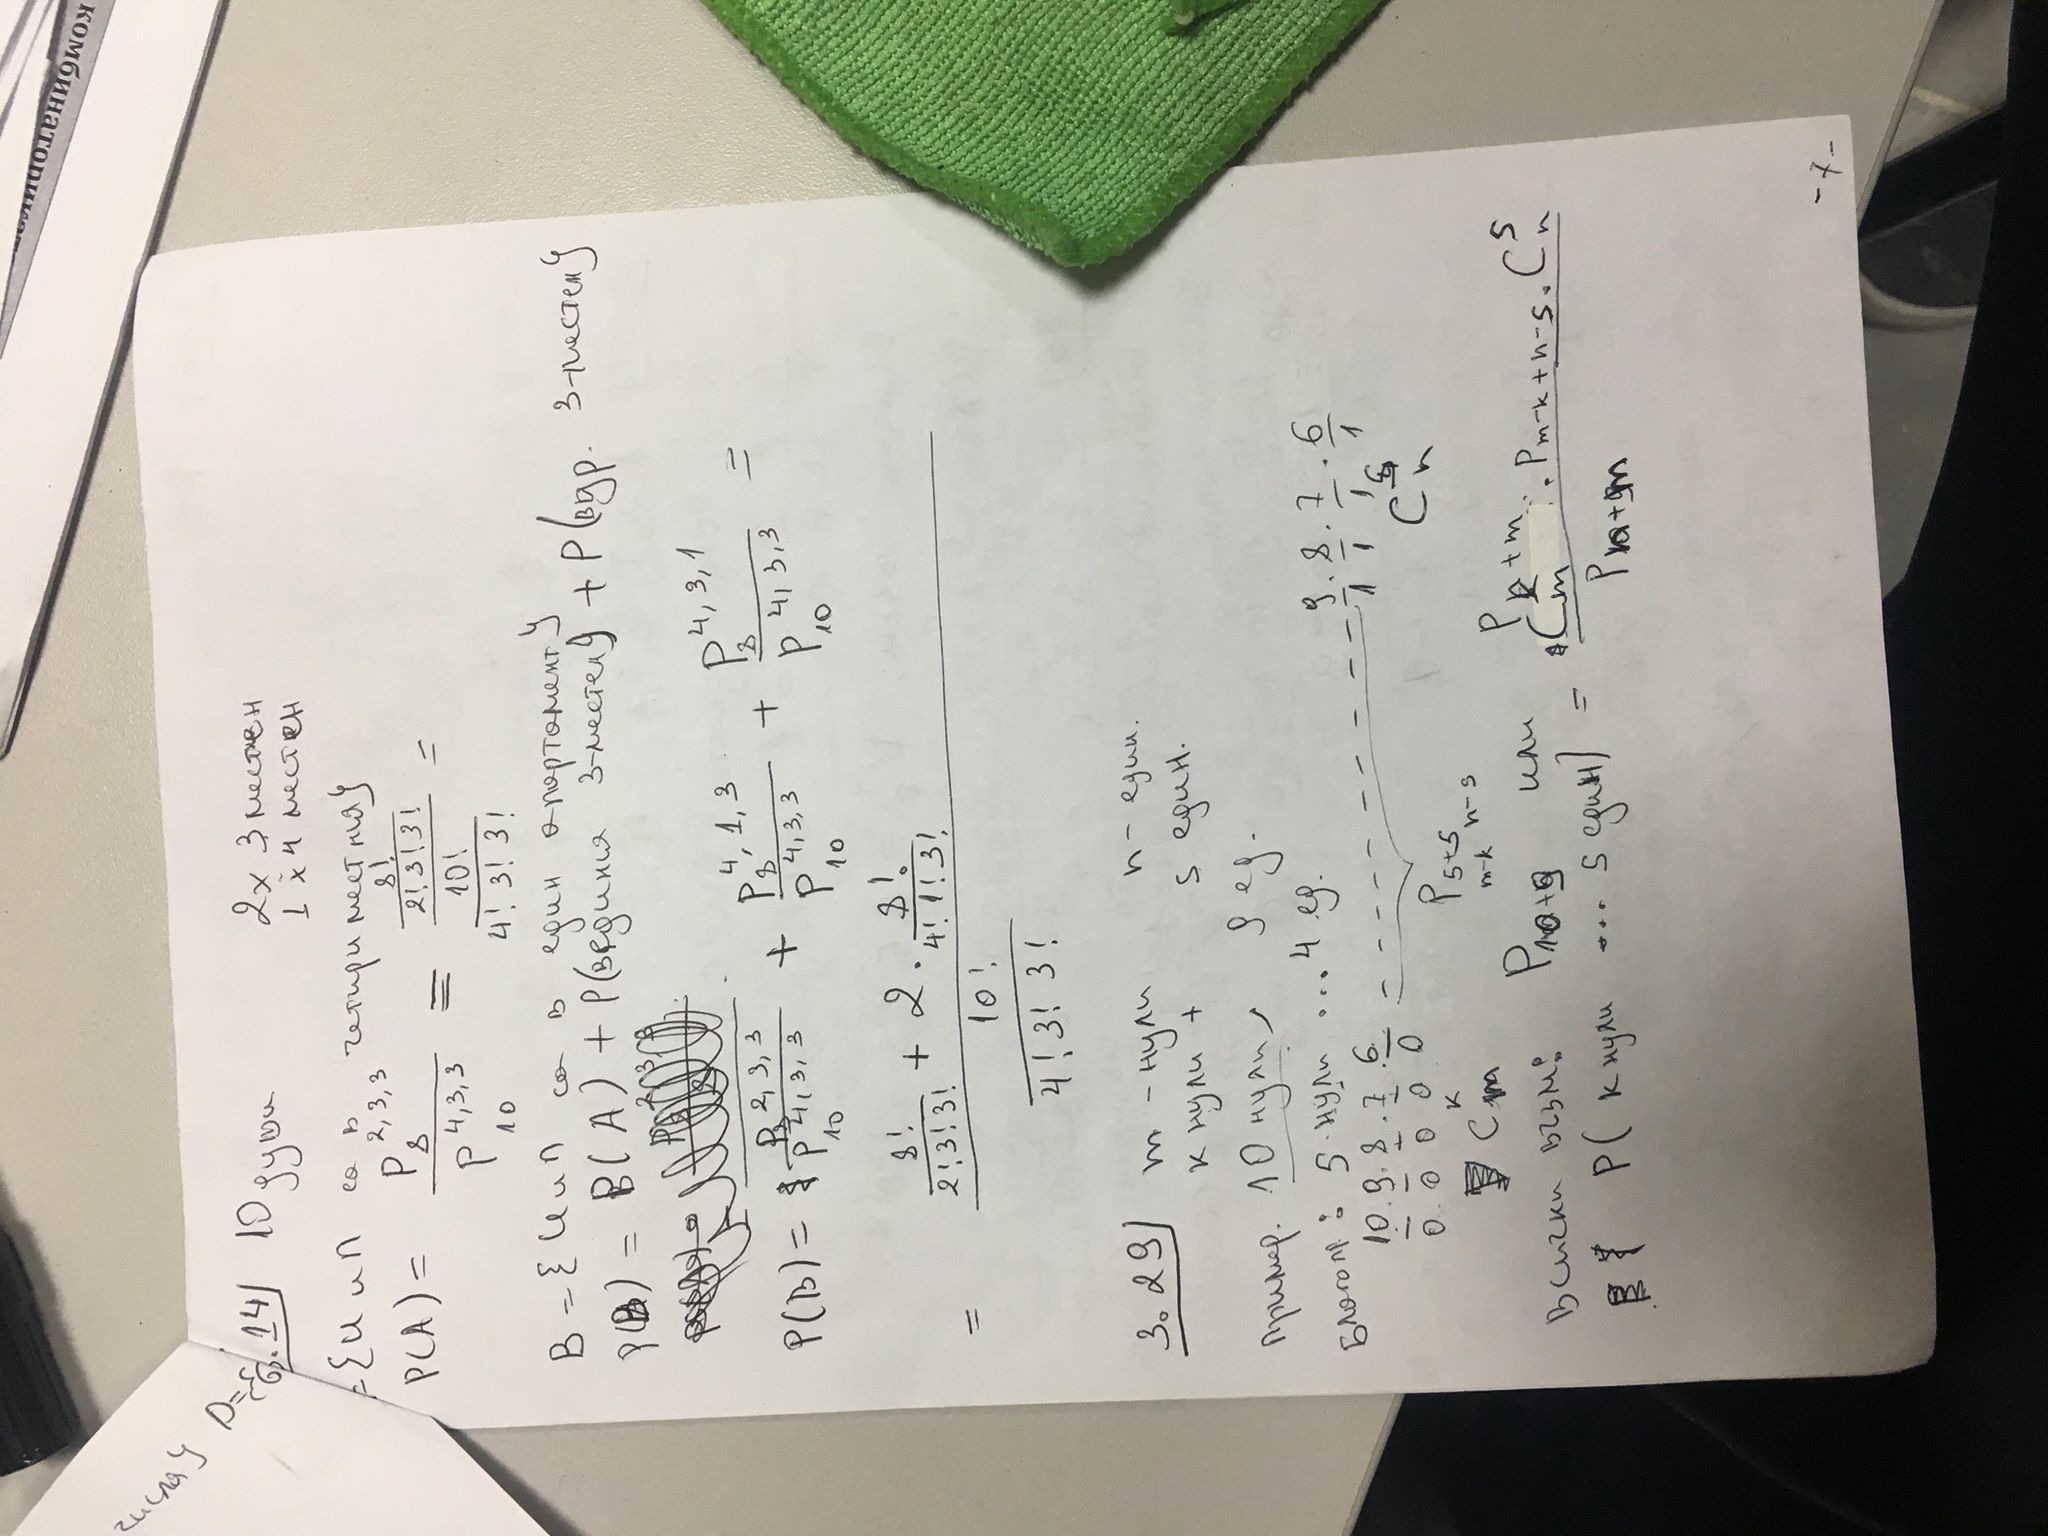 комбинаторика
числа} D={
6.14) 10 души 2x 3 местен
1 x 4 местен
={И и П са в четириместния}
P(A) = P₈^2,3,3 / P₁₀^4,3,3 = (8! / 2! 3! 3!) / (10! / 4! 3! 3!) =
B = {И и П са в един апартамент}
P(B) = P(A) + P(в единия 3-местен) + P(в др. 3-местен}
P(B) = P₈^2,3,3 / P₁₀^4,3,3 + P₈^4,1,3 / P₁₀^4,3,3 + P₈^4,3,1 / P₁₀^4,3,3 =
= (8! / 2! 3! 3! + 2 · 8! / 4! 1! 3!) / (10! / 4! 3! 3!)
3.29) m - нули n - един.
k нули + s един.
Пример. 10 нули, 9 ед.
Благопр: 5 нули ... 4 ед.
10 . 9 . 8 . 7 . 6 - - - - - - - - - 9 . 8 . 7 . 6
0 0 0 0 0 1 1 1 1
C_m^k P 5+5 m-k n-s C_n
Всички възм: P₁₀₊₉ или P n+m
P( k нули ... s един) = C_m^k . P m-k+n-s . C_n^s / P n+m
-7-